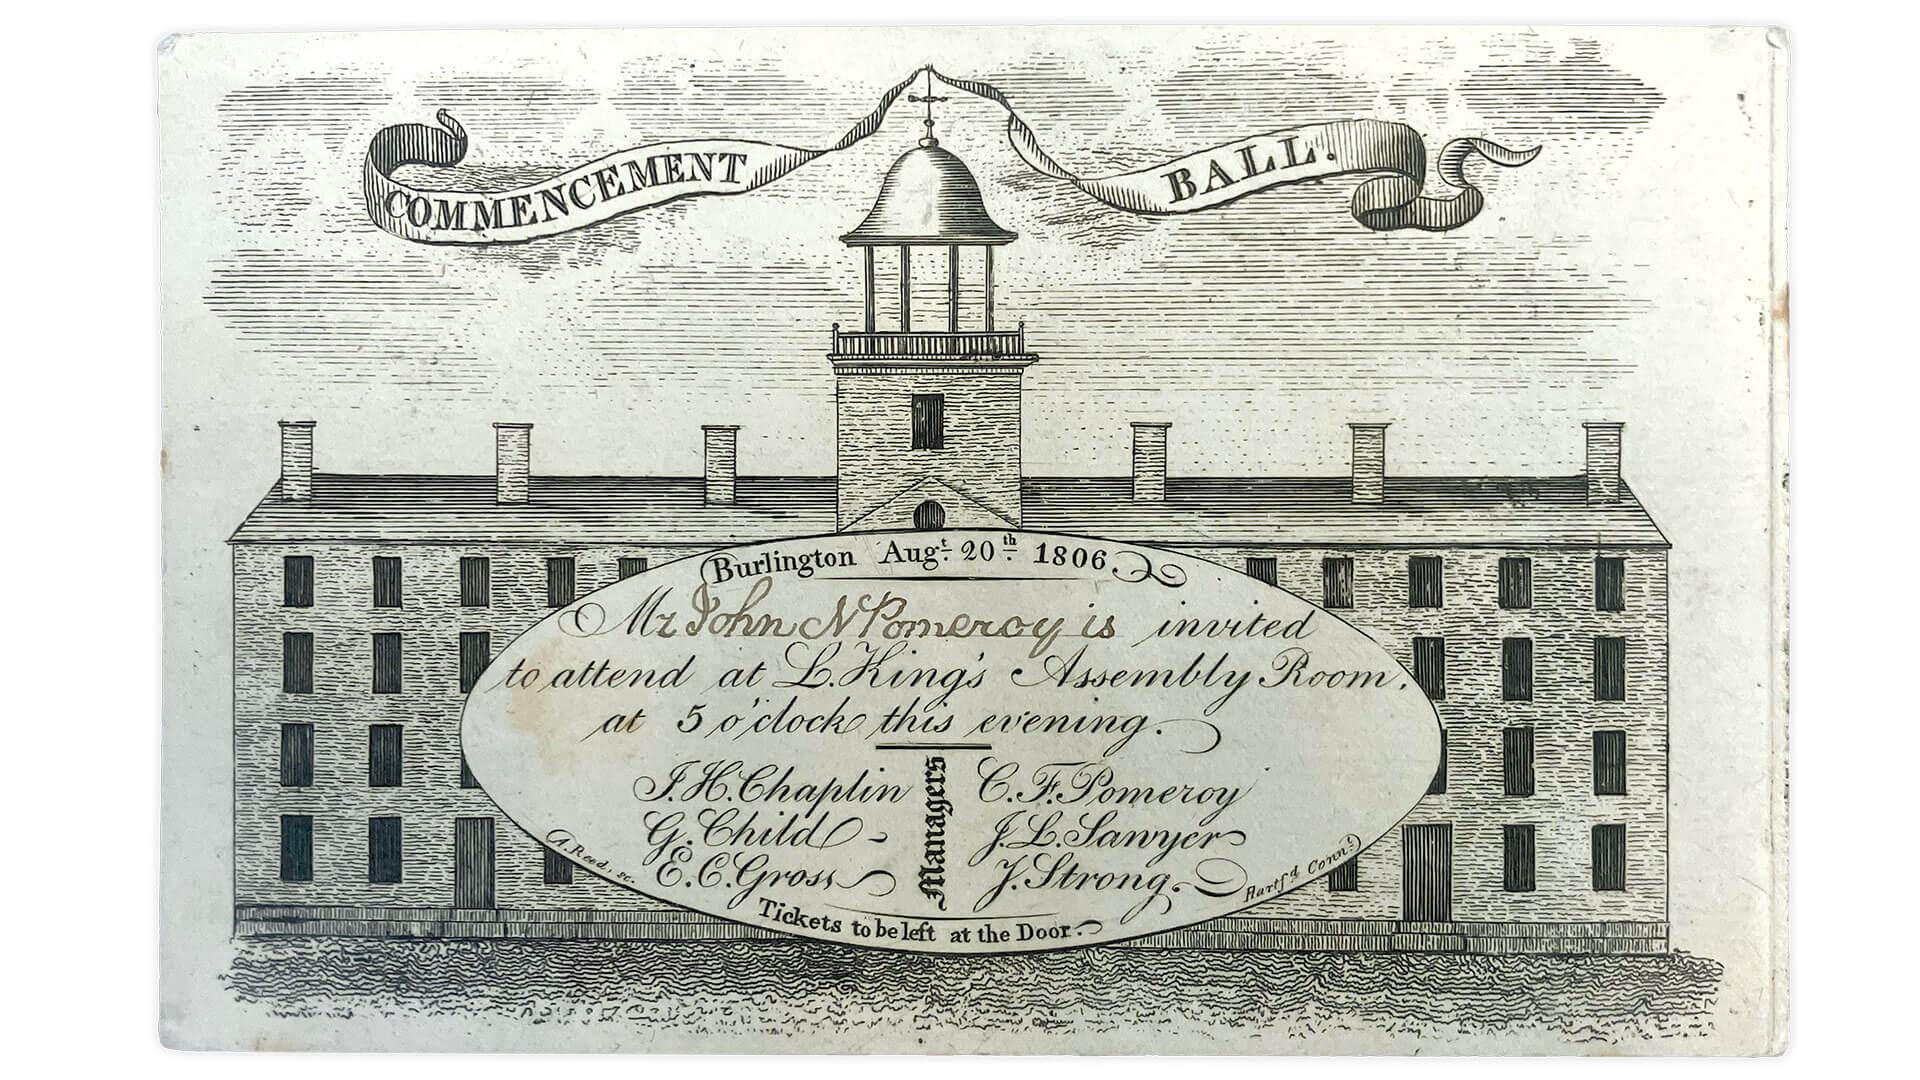 COMMENCEMENT BALL.
Burlington Augt. 20th. 1806.
Mr John N Pomeroy is invited
to attend at L. King's Assembly Room.
at 5 o'clock this evening.
Managers
J.H. Chaplin
G. Child
E.C. Gross
C.F. Pomeroy
J.L. Sawyer
J. Strong.
A. Reed, sc.
Hartfd. Connt.
Tickets to be left at the Door.